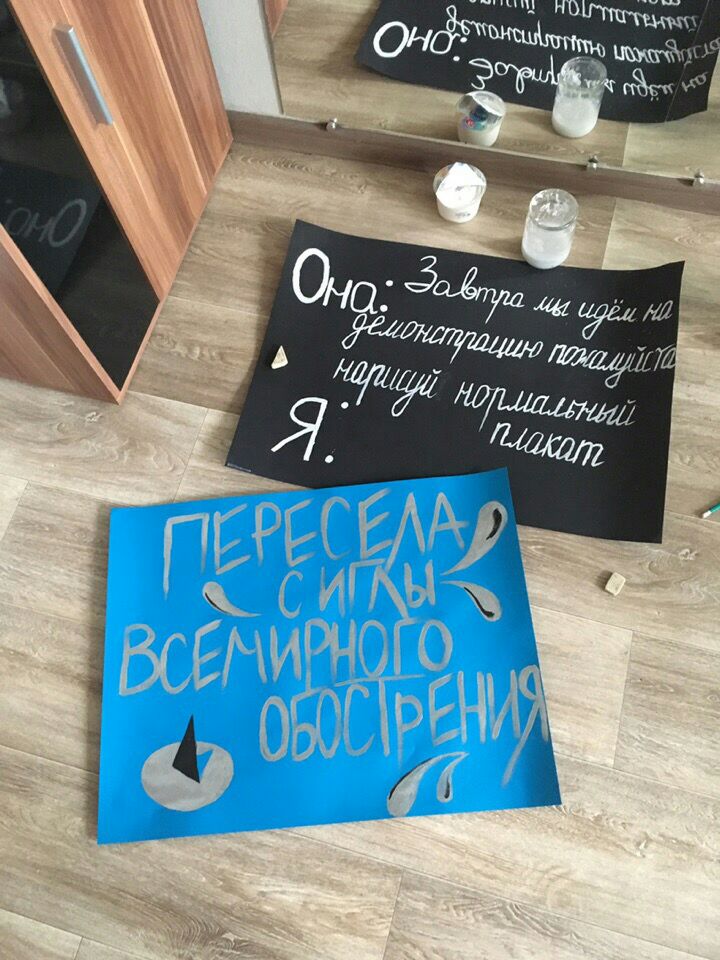 Она: Завтра мы идём на
демонстрацию пожалуйста
нарисуй нормальный
плакат
Я:
ПЕРЕСЕЛА
С ИГЛЫ
ВСЕМИРНОГО
ОБОСТРЕНИЯ